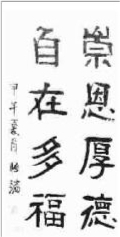 崇恩厚德
自在多福
甲午夏月